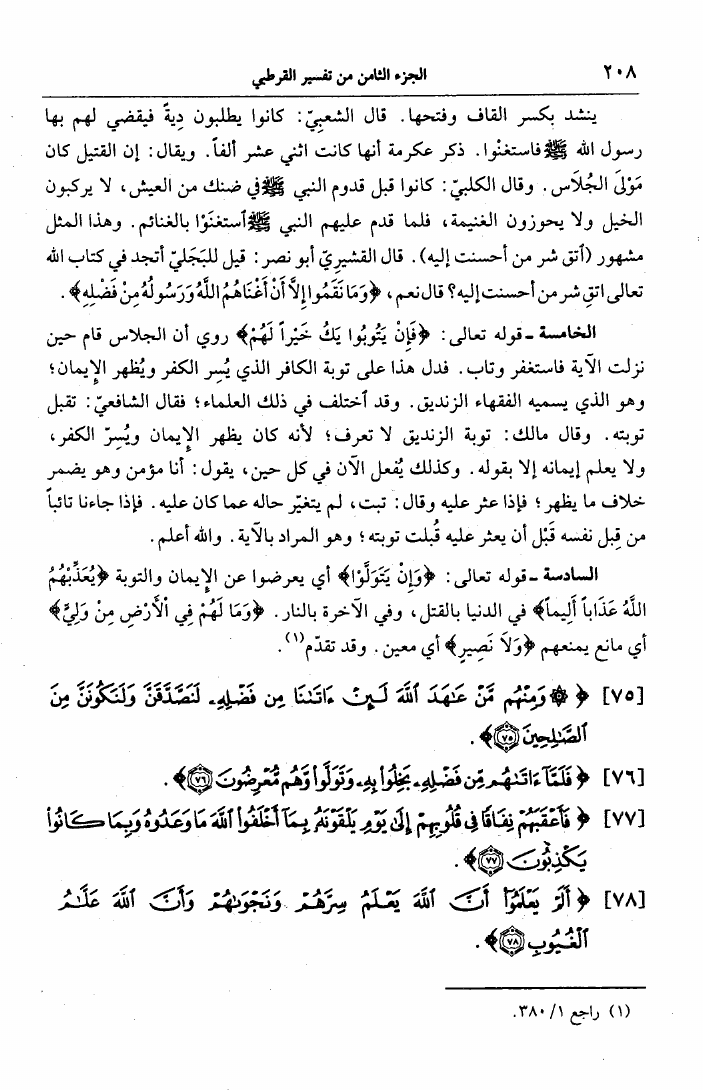 ٢٠٨ الجزء الثامن من تفسير القرطبي
ينشد بكسر القاف وفتحها. قال الشعبيّ: كانوا يطلبون دِيةً فيقضي لهم بها
رسول الله ﷺ فاستغنوا. ذكر عكرمة أنها كانت اثني عشر ألفاً. ويقال: إن القتيل كان
مَوْلَى الجُلَاس. وقال الكلبيّ: كانوا قبل قدوم النبي ﷺ في ضنك من العيش، لا يركبون
الخيل ولا يحوزون الغنيمة، فلما قدم عليهم النبي ﷺ ٱستغنَوْا بالغنائم. وهذا المثل
مشهور (ٱتق شر من أحسنت إليه). قال القشيريّ أبو نصر: قيل للبَجَليّ أتجد في كتاب الله
تعالى اتق شر من أحسنت إليه؟ قال نعم، ﴿وَمَا نَقَمُوا إِلَّا أَنْ أَغْنَاهُمُ اللَّهُ وَرَسُولُهُ مِنْ فَضْلِهِ﴾.
الخامسة - قوله تعالى: ﴿فَإِنْ يَتُوبُوا يَكُ خَيْراً لَهُمْ﴾ روي أن الجلاس قام حين
نزلت الآية فاستغفر وتاب. فدل هذا على توبة الكافر الذي يُسِر الكفر ويُظهر الإِيمان؛
وهو الذي يسميه الفقهاء الزنديق. وقد ٱختلف في ذلك العلماء؛ فقال الشافعيّ: تقبل
توبته. وقال مالك: توبة الزنديق لا تعرف؛ لأنه كان يظهر الإِيمان ويُسِرّ الكفر،
ولا يعلم إيمانه إلا بقوله. وكذلك يُفعل الآن في كل حين، يقول: أنا مؤمن وهو يضمر
خلاف ما يظهر؛ فإذا عثر عليه وقال: تبت، لم يتغيّر حاله عما كان عليه. فإذا جاءنا تائباً
من قِبل نفسه قَبْل أن يعثر عليه قُبلت توبته؛ وهو المراد بالآية. والله أعلم.
السادسة - قوله تعالى: ﴿وَإِنْ يَتَوَلَّوْا﴾ أي يعرضوا عن الإِيمان والتوبة ﴿يُعَذِّبْهُمُ
اللَّهُ عَذَاباً أَلِيماً﴾ في الدنيا بالقتل، وفي الآخرة بالنار. ﴿وَمَا لَهُمْ فِي الْأَرْضِ مِنْ وَلِيٍّ﴾
أي مانع يمنعهم ﴿وَلَا نَصِيرٍ﴾ أي معين. وقد تقدّم(١).
[٧٥] ﴿۞ وَمِنْهُم مَّنْ عَٰهَدَ ٱللَّهَ لَئِنْ ءَاتَىٰنَا مِن فَضْلِهِۦ لَنَصَّدَّقَنَّ وَلَنَكُونَنَّ مِنَ
ٱلصَّٰلِحِينَ ٧٥﴾.
[٧٦] ﴿فَلَمَّآ ءَاتَىٰهُم مِّن فَضْلِهِۦ بَخِلُوا۟ بِهِۦ وَتَوَلَّوا۟ وَّهُم مُّعْرِضُونَ ٧٦﴾.
[٧٧] ﴿فَأَعْقَبَهُمْ نِفَاقًا فِى قُلُوبِهِمْ إِلَىٰ يَوْمِ يَلْقَوْنَهُۥ بِمَآ أَخْلَفُوا۟ ٱللَّهَ مَا وَعَدُوهُ وَبِمَا كَانُوا۟
يَكْذِبُونَ ٧٧﴾.
[٧٨] ﴿أَلَمْ يَعْلَمُوٓا۟ أَنَّ ٱللَّهَ يَعْلَمُ سِرَّهُمْ وَنَجْوَىٰهُمْ وَأَنَّ ٱللَّهَ عَلَّٰمُ
ٱلْغُيُوبِ ٧٨﴾.
(١) راجع ١/ ٣٨٠.